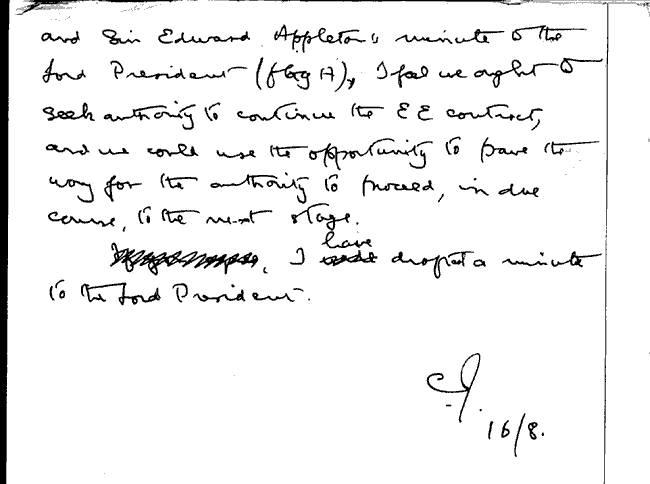 and Sir Edward Appleton's minute to the
Lord President (flag A), I feel we ought to
seek authority to continue the EE contract,
and we could use the opportunity to pave the
way for the authority to proceed, in due
course, to the next stage.
I have drafted a minute
to the Lord President.
16/8.